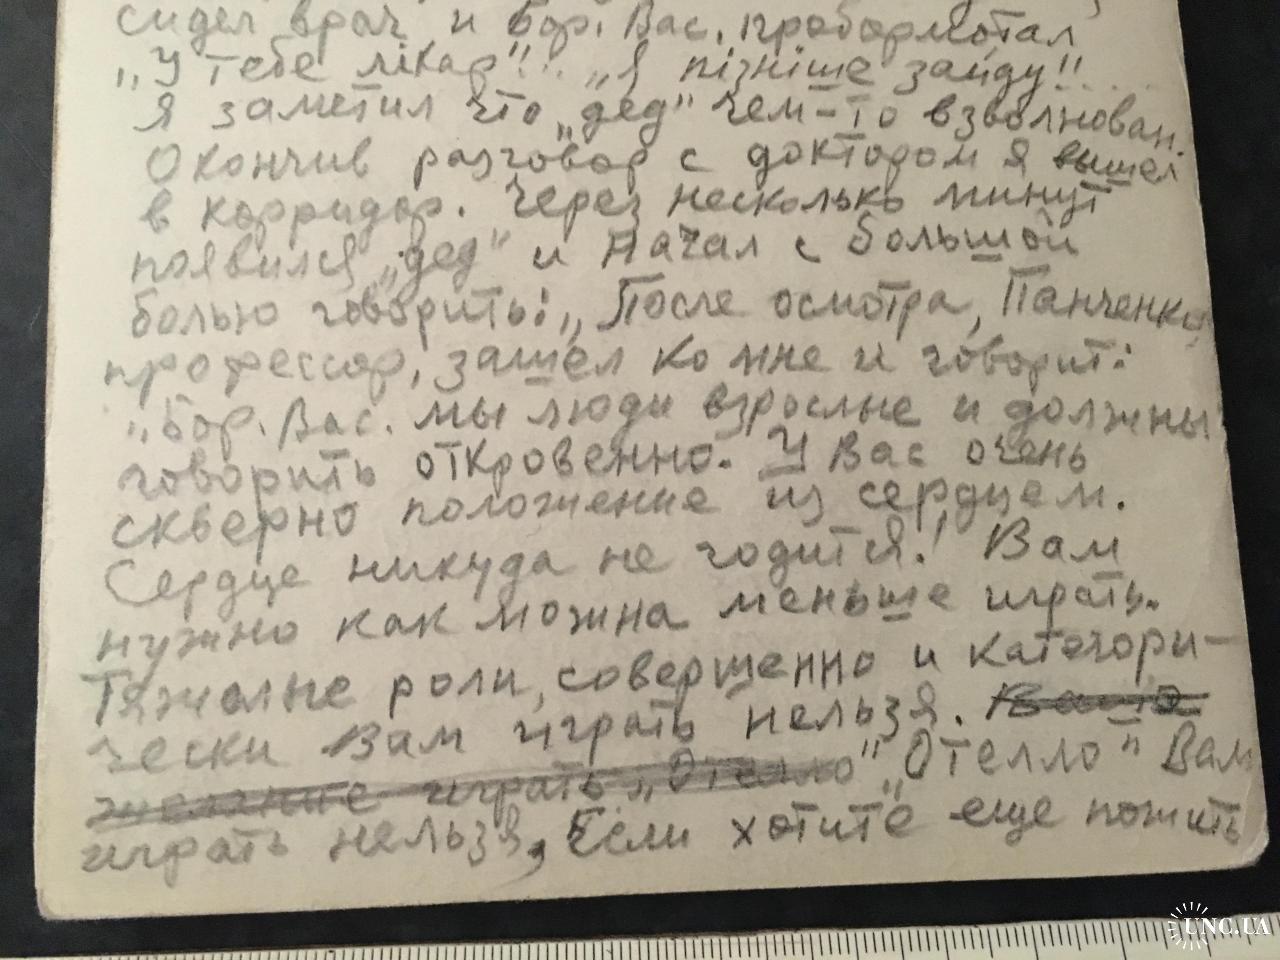 сидел врач и Бор. Вас. пробормотал
„У тебе лікар"!! „Я пізніше зайду!!
Я заметил что „дед" чем-то взволнован.
Окончив разговор с доктором я вышел
в корридор. Через несколько минут
появился „дед" и начал с большой
болью говорить: „После осмотра, Панченко,
профессор, зашел ко мне и говорит:
„Бор. Вас. мы люди взрослые и должны
говорить откровенно. У Вас очень
скверно положение из сердцем.
Сердце никуда не годится! Вам
нужно как можна меньше играть.
Тяжолые роли, совершенно и категори-
чески Вам играть нельзя. Ваше
желание играть „Отелло" „Отелло" Вам
играть нельзя, Если хотите еще пожить
UNC.UA